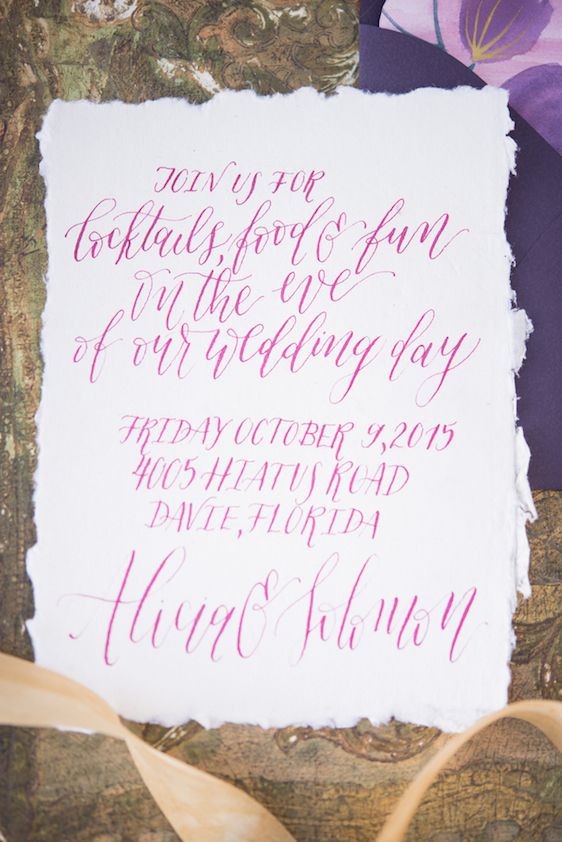 JOIN US FOR
Cocktails, food & fun
on the eve
of our wedding day
FRIDAY OCTOBER 9, 2015
4005 HIATUS ROAD
DAVIE, FLORIDA
Alicia & Solomon